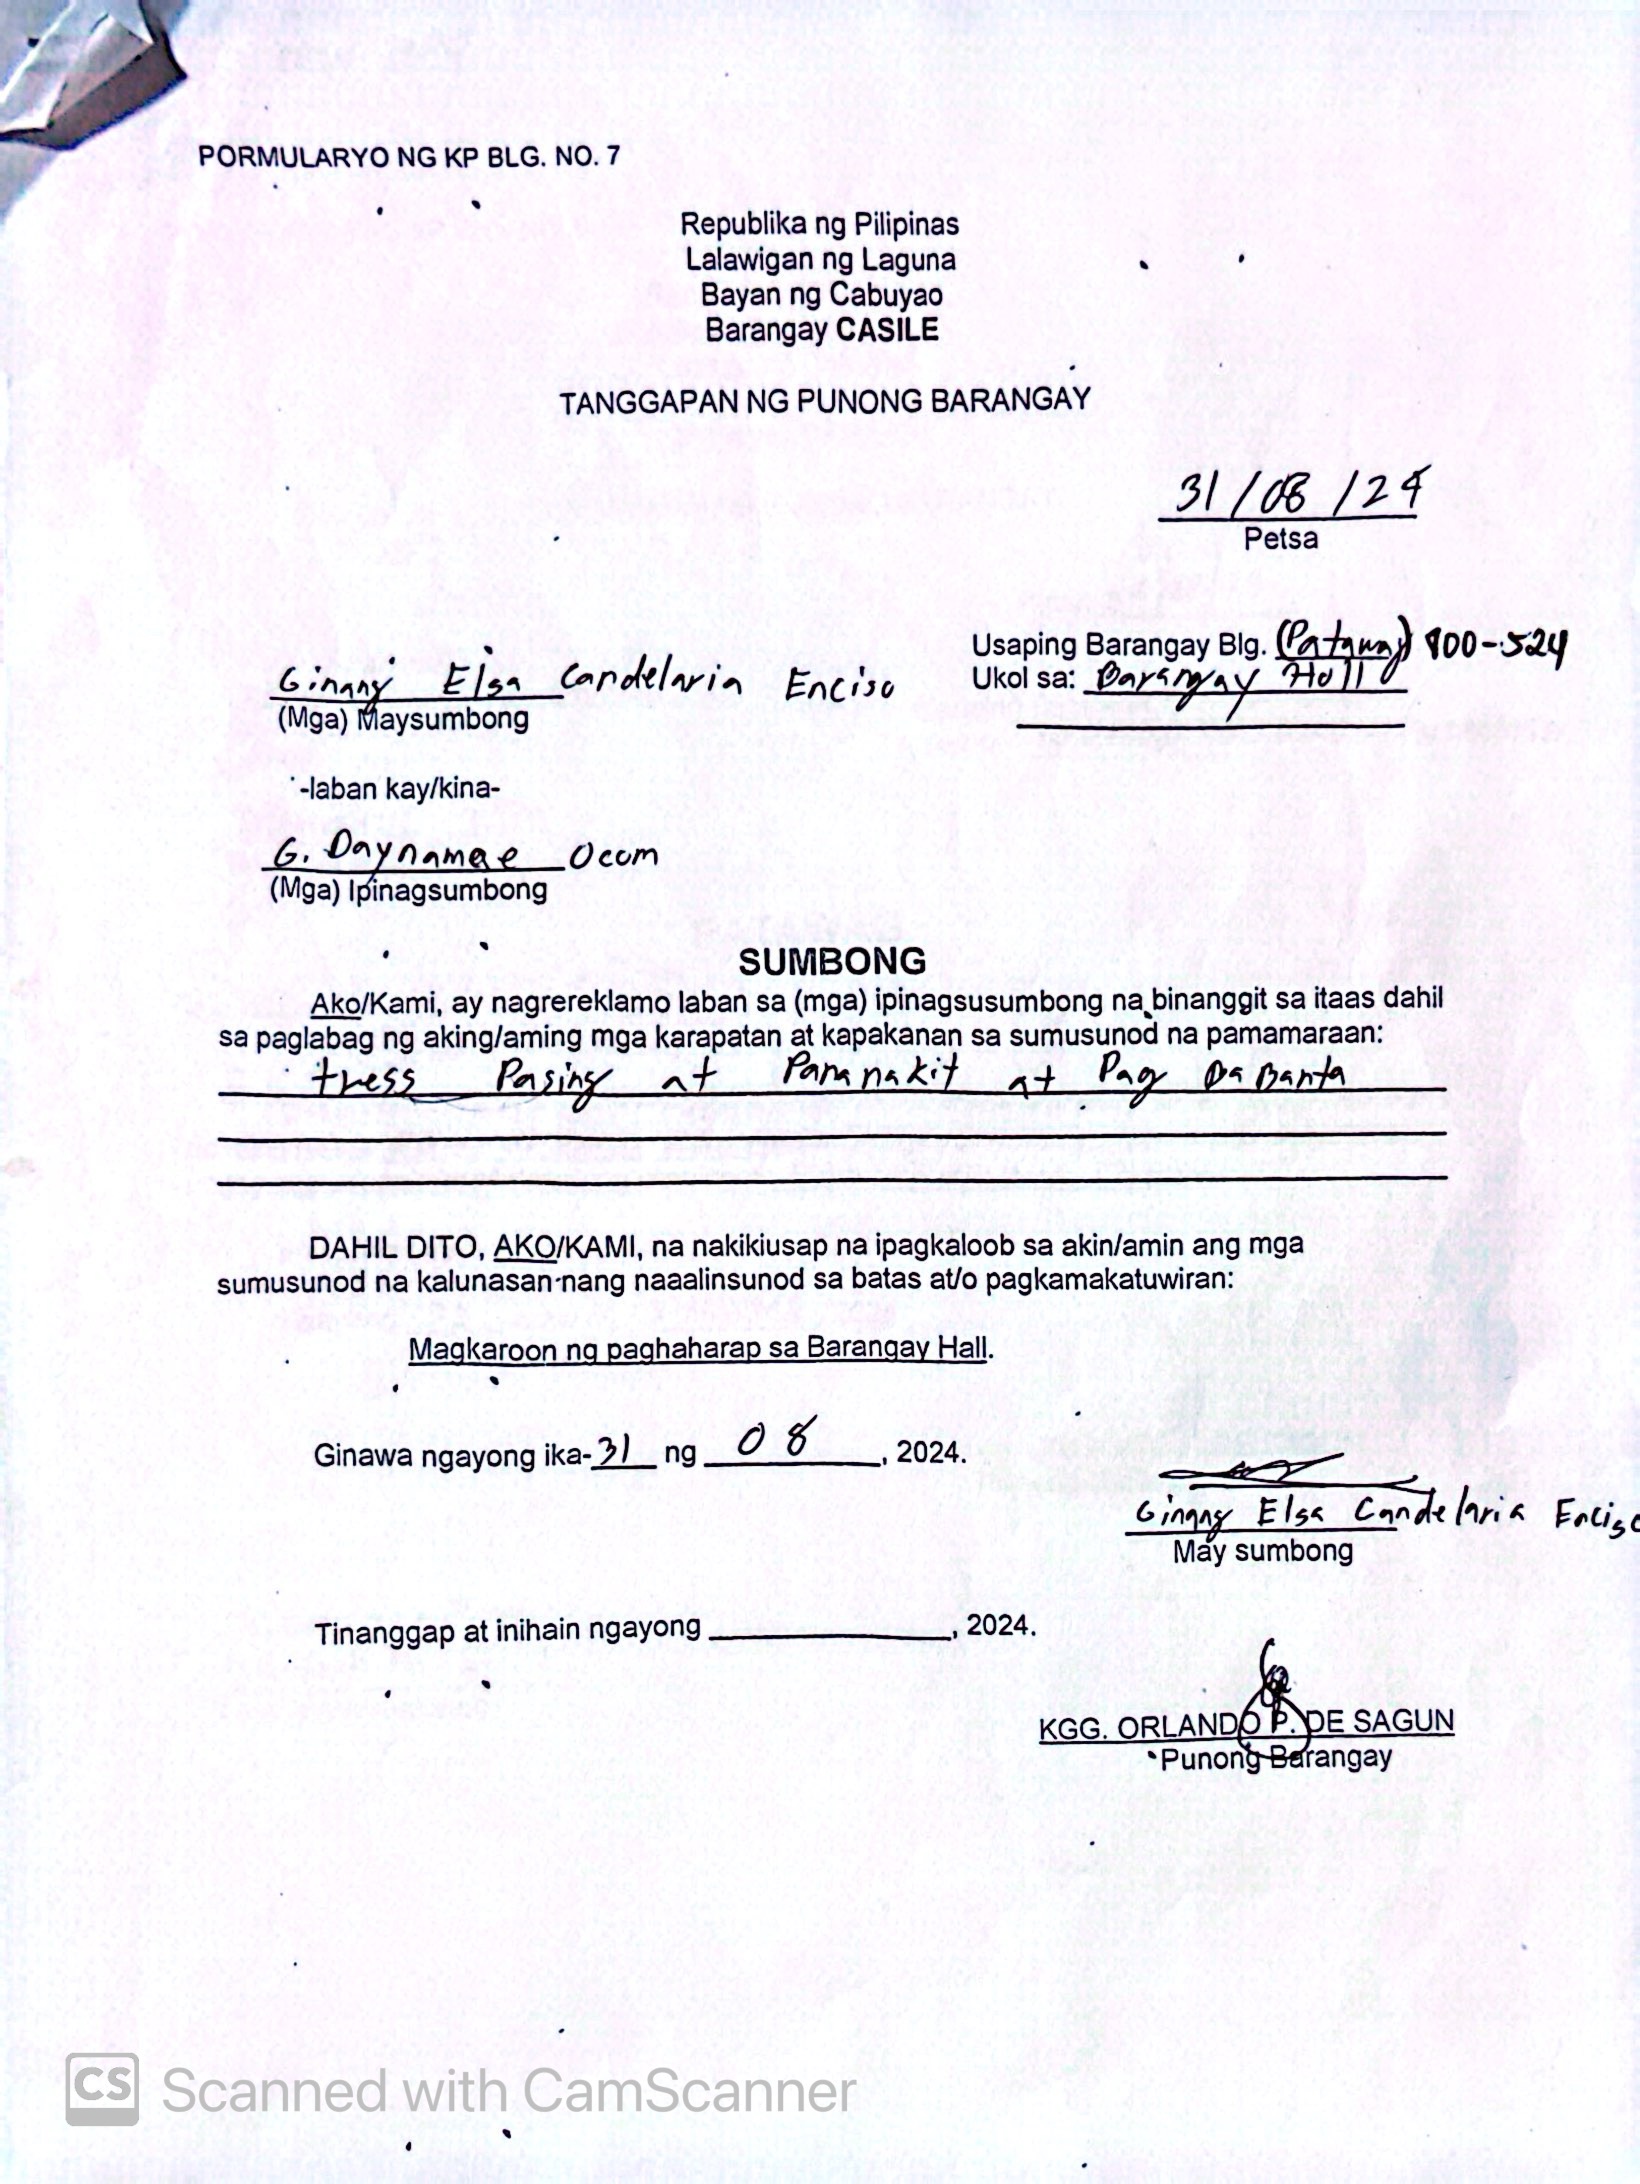 PORMULARYO NG KP BLG. NO. 7
Republika ng Pilipinas
Lalawigan ng Laguna
Bayan ng Cabuyao
Barangay CASILE
TANGGAPAN NG PUNONG BARANGAY
31/08/24
Petsa
Usaping Barangay Blg. (Patawag) 800-524
Ukol sa: Barangay Hall
Ginang Elsa Candelaria Enciso
(Mga) Maysumbong
-laban kay/kina-
G. Daynamae Ocom
(Mga) Ipinagsumbong
SUMBONG
Ako/Kami, ay nagrereklamo laban sa (mga) ipinagsusumbong na binanggit sa itaas dahil
sa paglabag ng aking/aming mga karapatan at kapakanan sa sumusunod na pamamaraan:
tress Pasing at Pananakit at Pag Da Banta
DAHIL DITO, AKO/KAMI, na nakikiusap na ipagkaloob sa akin/amin ang mga
sumusunod na kalunasan nang naaalinsunod sa batas at/o pagkamakatuwiran:
Magkaroon ng paghaharap sa Barangay Hall.
Ginawa ngayong ika-31 ng 08, 2024.
Ginang Elsa Candelaria Enciso
May sumbong
Tinanggap at inihain ngayong ____________, 2024.
KGG. ORLANDO P. DE SAGUN
Punong Barangay
CS Scanned with CamScanner